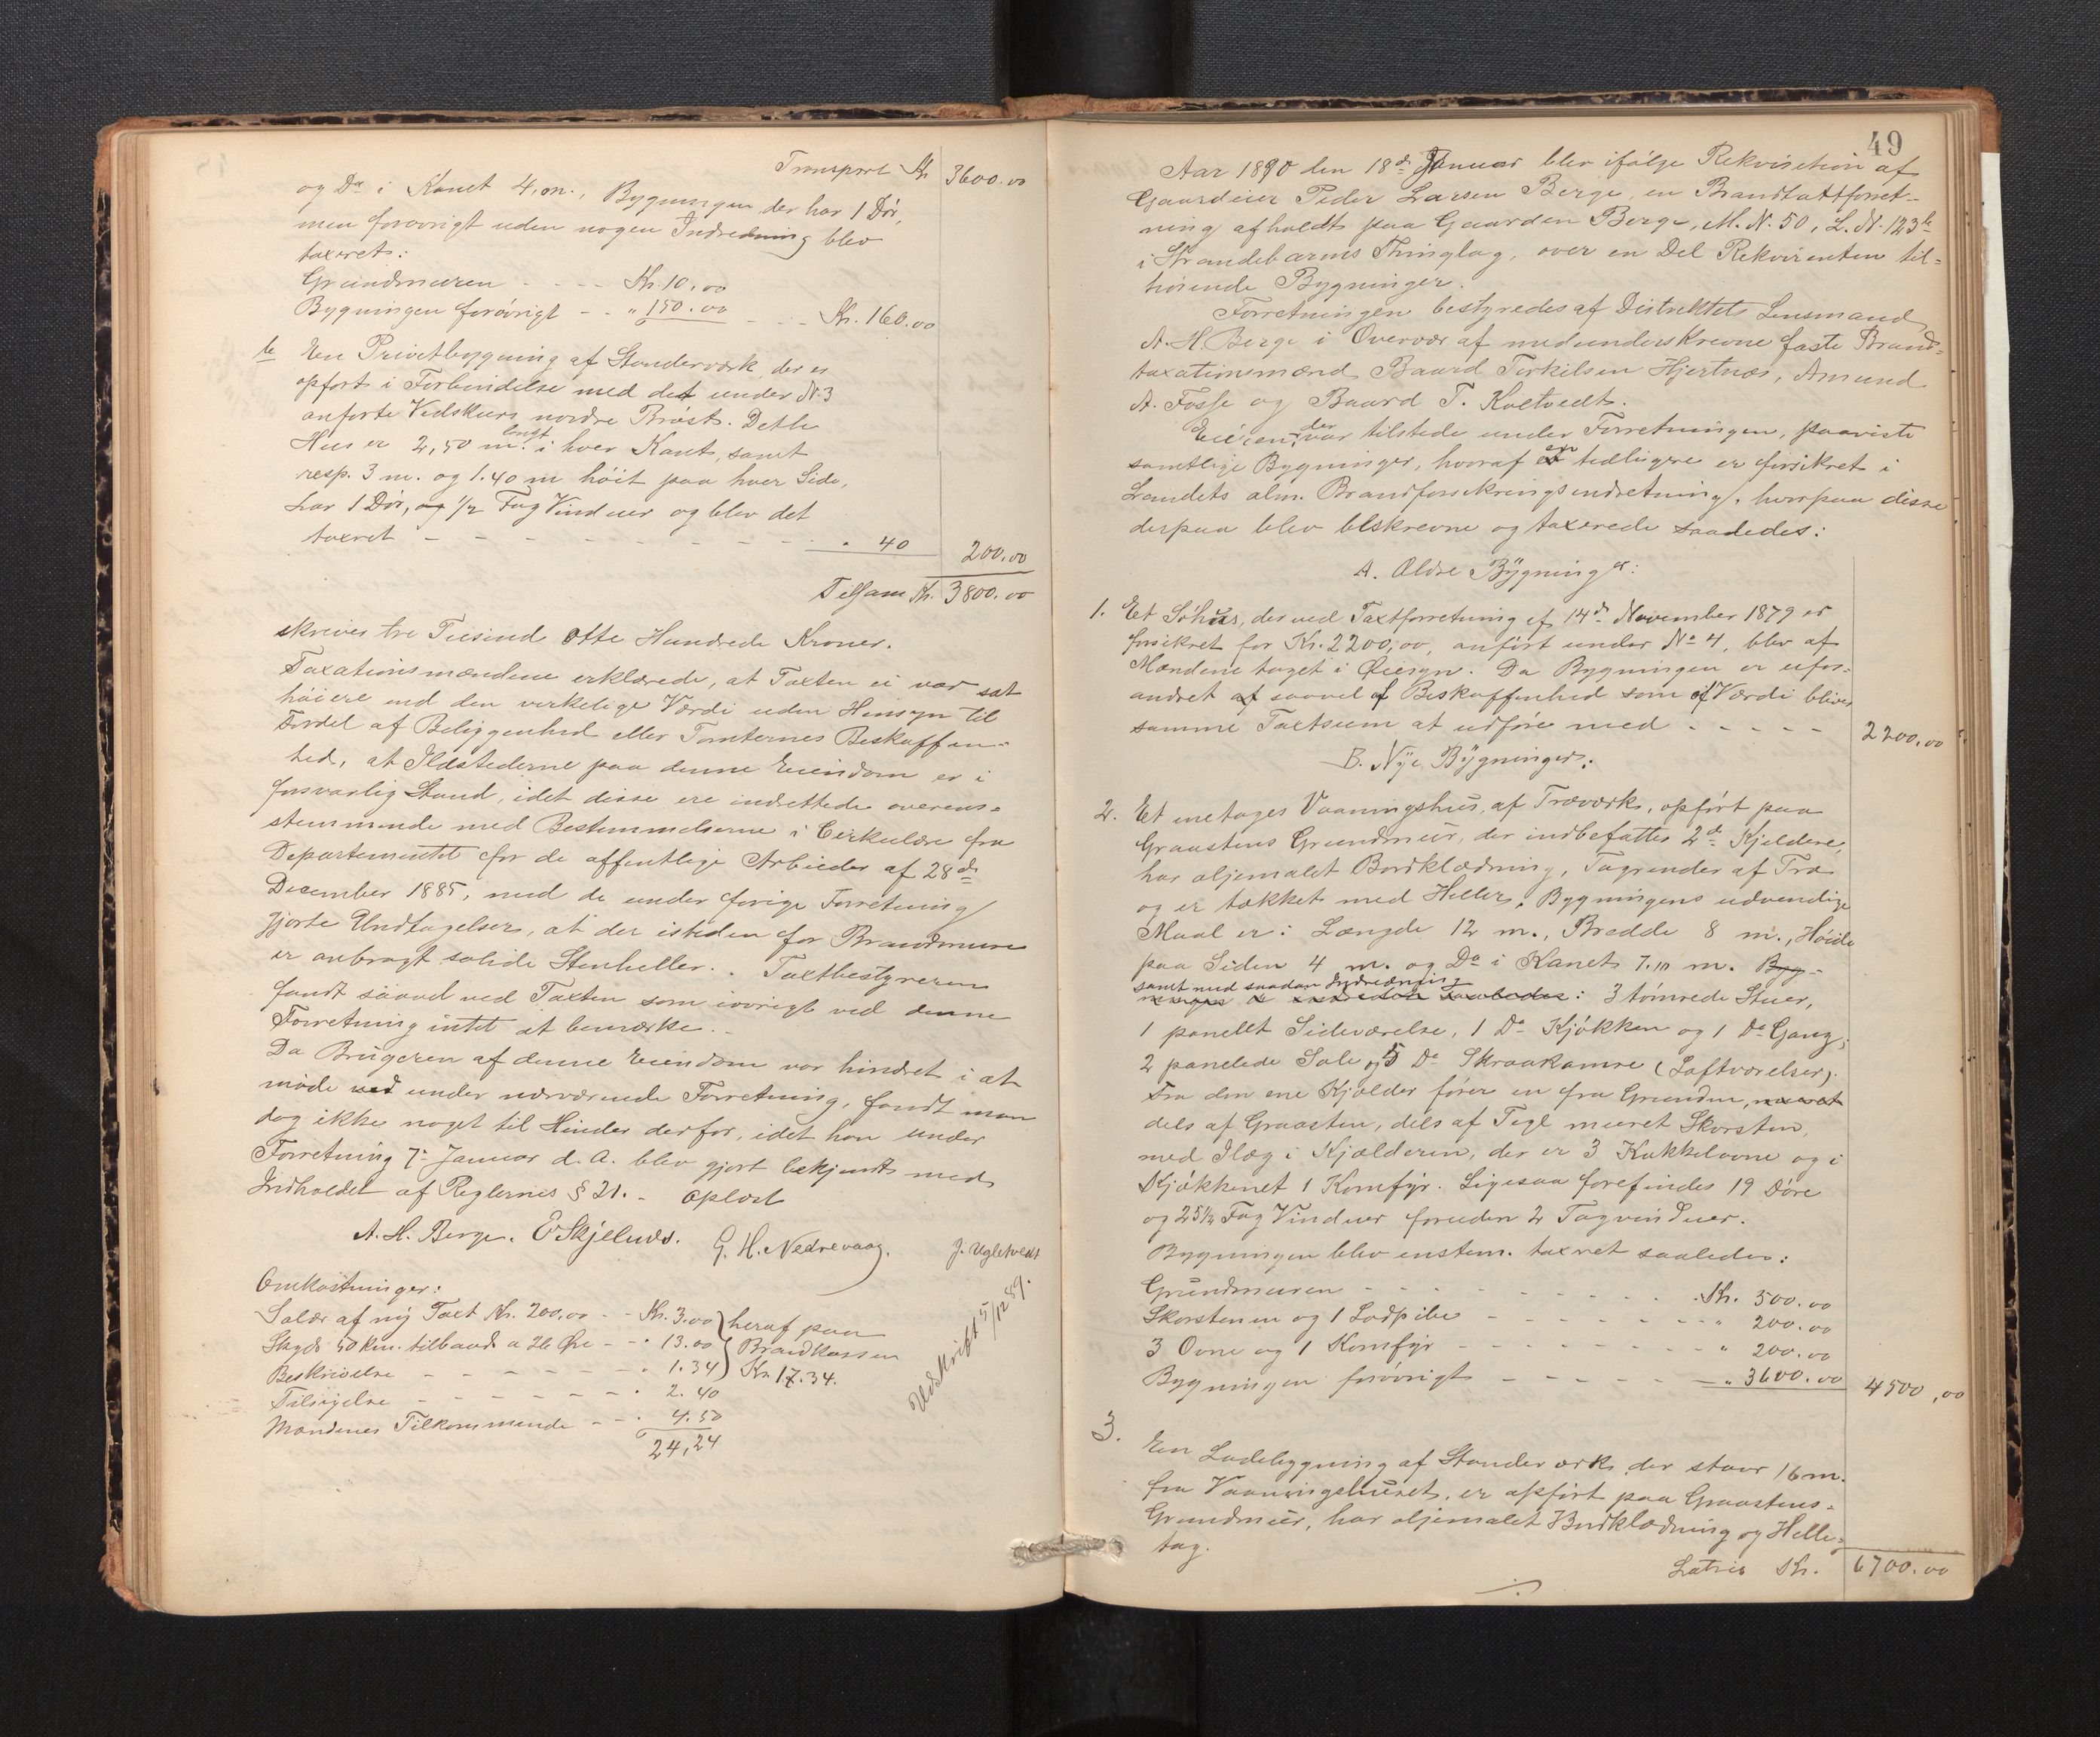 Transport Kr 3600.00
og Do i Kanet 4,m., Bygningen, der har 1 Dör,
men forøvrigt uden nogen Indredning blev
taxeret:
Grundmuren - - - - Kr. 10,00
Bygningen forövrigt - - " 150.00 - - - Kr. 160.00
b En Privetbygning af Stenderværk, der er
opfört i Forbindelse med det under N. 3
anførte Vedskurs nordre Bröst. Dette
Hus er 2,50 m. langt i hver Kant, samt
resp. 3 m. og 1.40 m höit paa hver Side,
har 1 Dör, og 1/2 Fag Vinduer og blev det
taxeret - - - - - - - - - - " 40 200.00
Tilsam Kr. 3800.00
skriver tre Tusind Otte Hundrede Kroner.
Taxationsmændene erklærede, at Taxten ei var sat
höiere end den virkelige Værdi uden Hensyn til
Fordel af Beliggenhed eller Tomternes Beskaffen-
hed, at Ildstederne paa denne Eiendom er i
forsvarlig Stand, idet disse ere indrettede overens-
stemmende med Bestemmelserne i Cirkulære fra
Departementet for de offentlige Arbieder af 28de
December 1885, med de under forige Forretning
gjorte Undtagelser, at der istedenfor Brandmure
er anbragt solide Stenheller. Taxtbestyreren
fandt saavel ved Taxten som iøvrigt ved denne
Forretning intet at bemærke. -
Da Brugeren af denne Eiendom var hindret i at
møde ved under nærværende Forretning, fandt man
dog ikke noget til Hinder derfor, idet han under
Forretning 7de Januar d. A. blev gjort bekjendt med
Indholdet af Reglernes § 21. - Oplæst
A. H. Berge. E Skjelnes. G. H. Nedrevaag. J. Ugletvedt
Omkostninger:
Salær af ny Taxt Kr. 200.00 - - Kr. 3.00 heraf paa
Skyds 50 km. tilbaads a 26 Öre - - " 13.00 Brandkassen
Beskrivelse - - - - - - " 1.34 Kr. 17.34.
Tilsigelse - - - - - - - " 2.40
Mændenes Tilkommende - - " 4.50
24,24
Udskrift 5/12 89.
49
Aar 1890 den 18de Januar blev ifölge Rekvisition af
Gaardeier Peder Larsen Berge, en Brandtaxtforret-
ning afholdt paa Gaarden Berge, M. N. 50, L. N. 123b
i Strandebarms Thinglag, over en Del Rekvirenten til-
hörende Bygninger.
Forretningen bestyredes af Distriktets Lensmand
A. H. Berge i Overvær af medunderskrevne faste Brand-
taxationsmænd Baard Torkilsen Hjertnæs, Amund
A. Fosse og Baard T. Koltvedt.
Eieren, der var tilstede under Forretningen, paaviste
samtlige Bygninger, hvoraf en tidligere er forsikret i
Landets alm. Brandforsikringsindretning, hvorpaa disse
derpaa blev beskrevne og taxerede saaledes:
A. Ældre Bygninger:
1. Et Söhus, der ved Taxtforretning af 14de November 1879 er
forsikret for Kr. 2200,00, anfört under No 4, blev af
Mændene taget i Øiesyn. Da Bygningen er ufor-
andret af saavel af Beskaffenhed som af Værdi bliver
samme Taxtsum at udføre med - - - - - 2200.00
B. Nye Bygninger:
2. Et enetages Vaaningshus, af Træværk, opfört paa
Graastens Grundmur, der indbefatter 2de Kjeldere,
har oljemalet Bordklædning, Tagrender af Træ
og er tækket med Heller. Bygningens udvendige
Maal er: Længde 12 m., Bredde 8 m., Höide
paa Siden 4 m. og Do i Kanet 7.10 m. Byg-
samt med saadan Indredning
ningen er indredet saaledes: 3 tömrede Stuer,
1 panelet Sideværelse, 1 Do Kjökken og 1 Do Gang,
2 panelede Sale og 5 Do Skraakamre (Loftværelser).
Fra den ene Kjælder förer en fra Grunden, muret
dels af Graasten, dels af Tegl muret Skorsten,
med Ilæg i Kjælderen, der er 3 Kakkelovne og i
Kjøkkenet 1 Komfyr. Ligesaa forefindes 19 Döre
og 25 1/2 Fag Vinduer foruden 2 Tagvinduer.
Bygningen blev enstem. taxeret saaledes:
Grundmuren - - - - - - - - Kr. 500.00
Skorstenen og 1 Lodpibe - - - - - - " 200.00
3 Ovne og 1 Komfyr - - - - - - - " 200.00
Bygningen forövrigt - - - - - - " 3600.00 4500,00
3. En Ladebygning af Stenderværk, der staar 16 m.
fra Vaaningshuset, er opfört paa Graastens-
Grundmur, har oljemalet Bordklædning og Helle-
tag.
Latris Kr. 6700.00